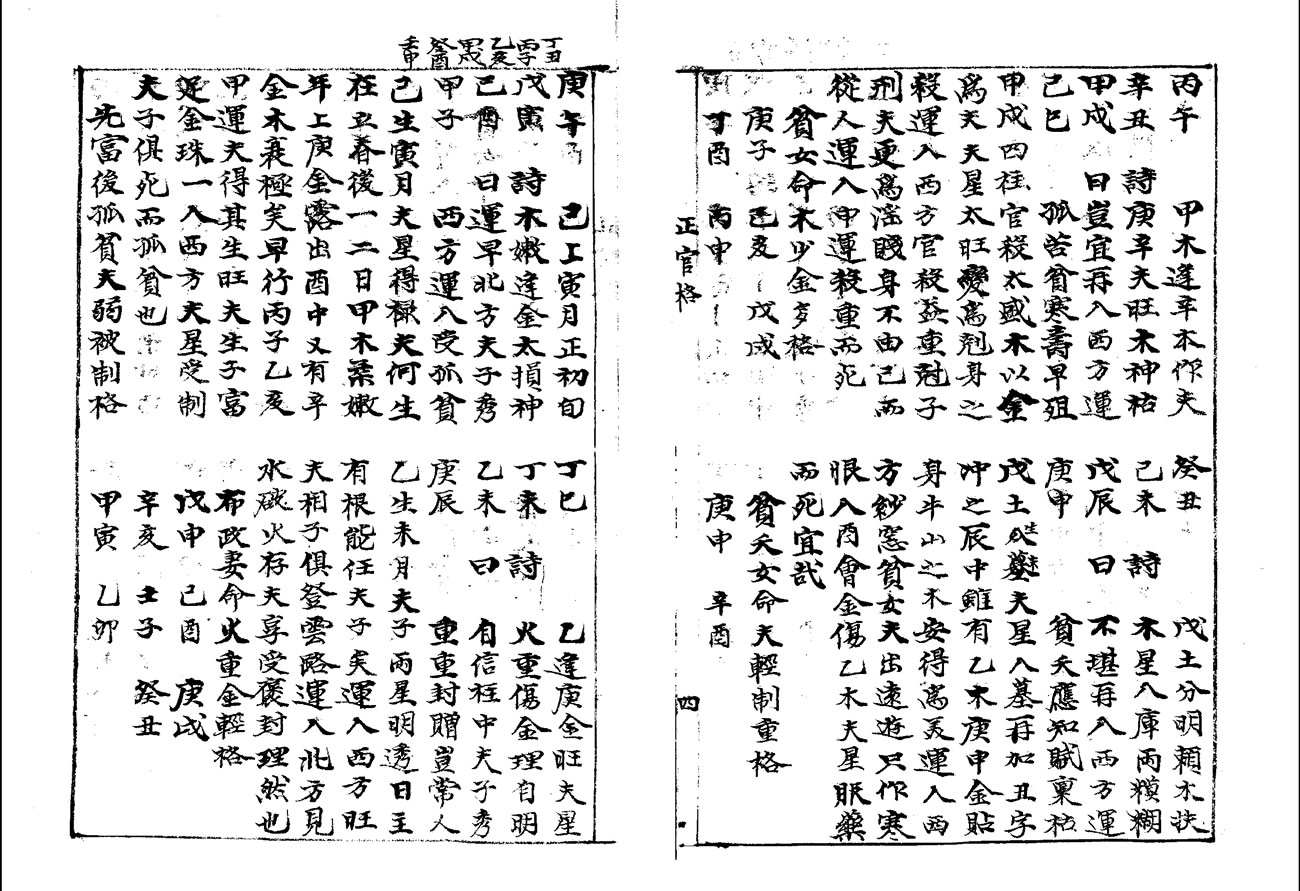 丙午 甲木逢辛本作夫
辛丑 詩 庚辛夫旺木神枯
甲戌 曰 豈宜再入西方運
己巳 孤苦貧寒壽早殂
甲戌四柱官殺太盛木以金
為夫夫星太旺變為尅身之
殺運入西方官殺益重尅子
刑夫更為淫賤身不由己而
從人運入申運殺重而死
貧女命木少金多格
庚子 己亥 戊戌
丁酉 丙申
癸丑 戊土分明賴木扶
己未 詩 木星入庫両糢糊
戊辰 曰 不堪再入西方運
庚申 貧夭應知賦稟枯
戊土 墓夫星入墓再加丑字
冲之辰中雖有乙木庚申金貼
身半山之木安得為美運入西
方紗窓貧女夫出遠遊只作寒
眼入酉會金傷乙木夫星服藥
而死宜哉
貧夭女命夫輕制重格
庚申 辛酉
正官格
四
丁丑 丙子 乙亥 甲戌 癸酉 壬申
庚午 己上寅月正初旬
戊寅 詩 木嫩逢金太損神
己酉 曰 運早北方夫子秀
甲子 西方運入受孤貧
己生寅月夫星得祿夫何生
在立春後一二日甲木葉嫩
年上庚金露出酉中又有辛
金木衰極矣早行丙子乙亥
甲運夫得其生旺夫生子富
足金珠一入西方夫星受制
夫子俱死而孤貧也
先富後孤貧夫弱被制格
丁巳 乙逢庚金旺夫星
丁未 詩 火重傷金理自明
乙未 曰 自信柱中夫子秀
庚辰 重重封贈豈常人
乙生未月夫子両星明透日主
有根能任夫子矣運入西方旺
夫相子俱登雲路運入北方見
水破火存夫享受褒封理然也
布政妻命火重金輕格
戊申 己酉 庚戌
辛亥 壬子 癸丑
甲寅 乙卯